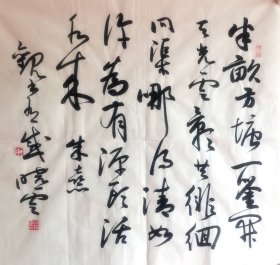 半亩方塘一鉴开
天光云影共徘徊
问渠哪得清如
许为有源头活
水来 朱熹
观书有感 晓云